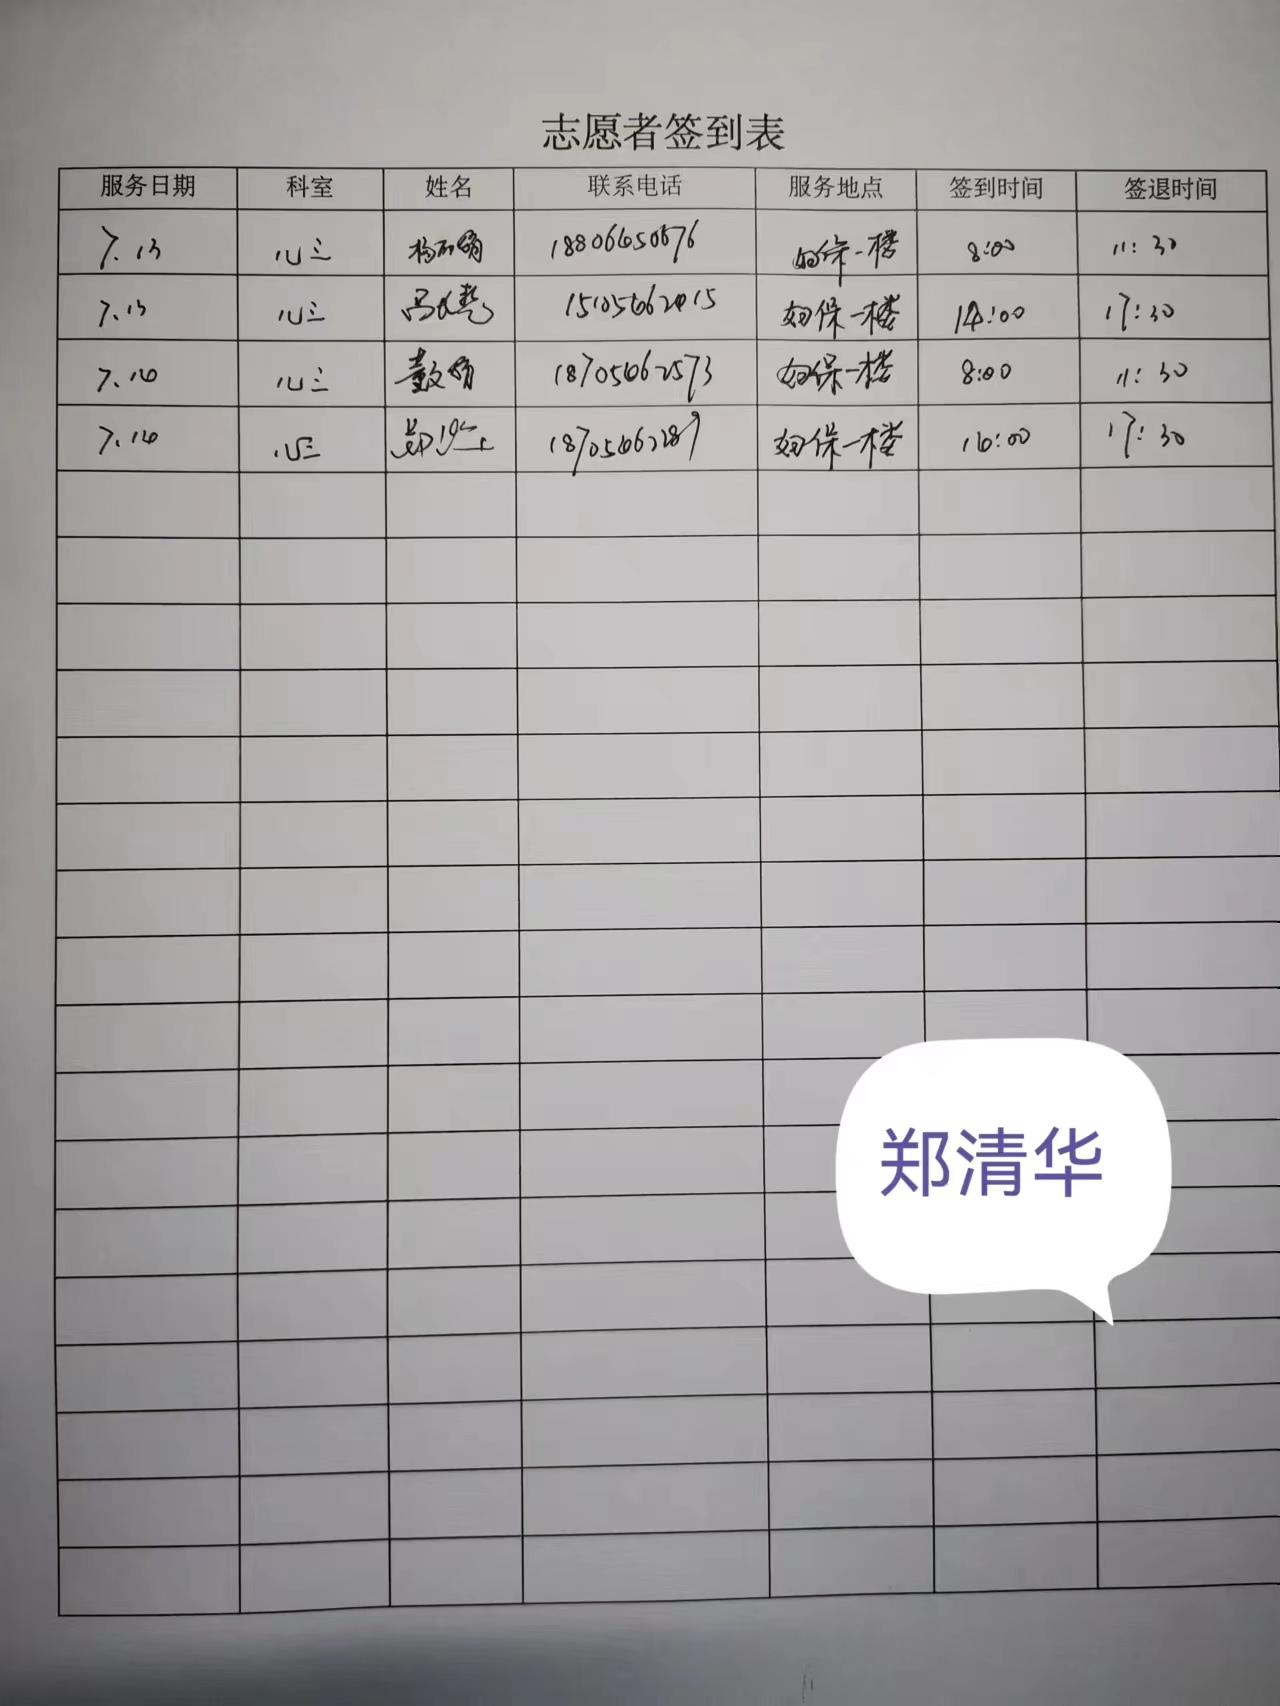 志愿者签到表
服务日期 科室 姓名 联系电话 服务地点 签到时间 签退时间
7.13 心三 妇保一楼 8:00 11:30
7.13 心三 妇保一楼 14:00 17:30
7.14 心三 18705662573 妇保一楼 8:00 11:30
7.14 心三 妇保一楼 17:30
郑清华